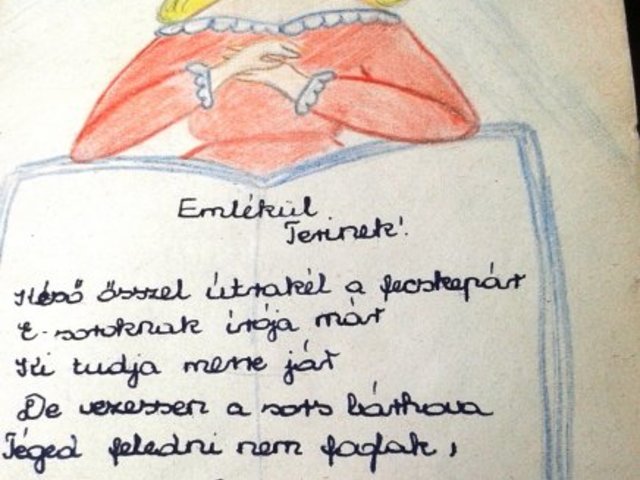 Emlékül
Terinek!
Késő ősszel útrakél a fecskepár
E-soroknak írója már
Ki tudja merre jár
De vezessen a sors bárhova
Téged feledni nem foglak,